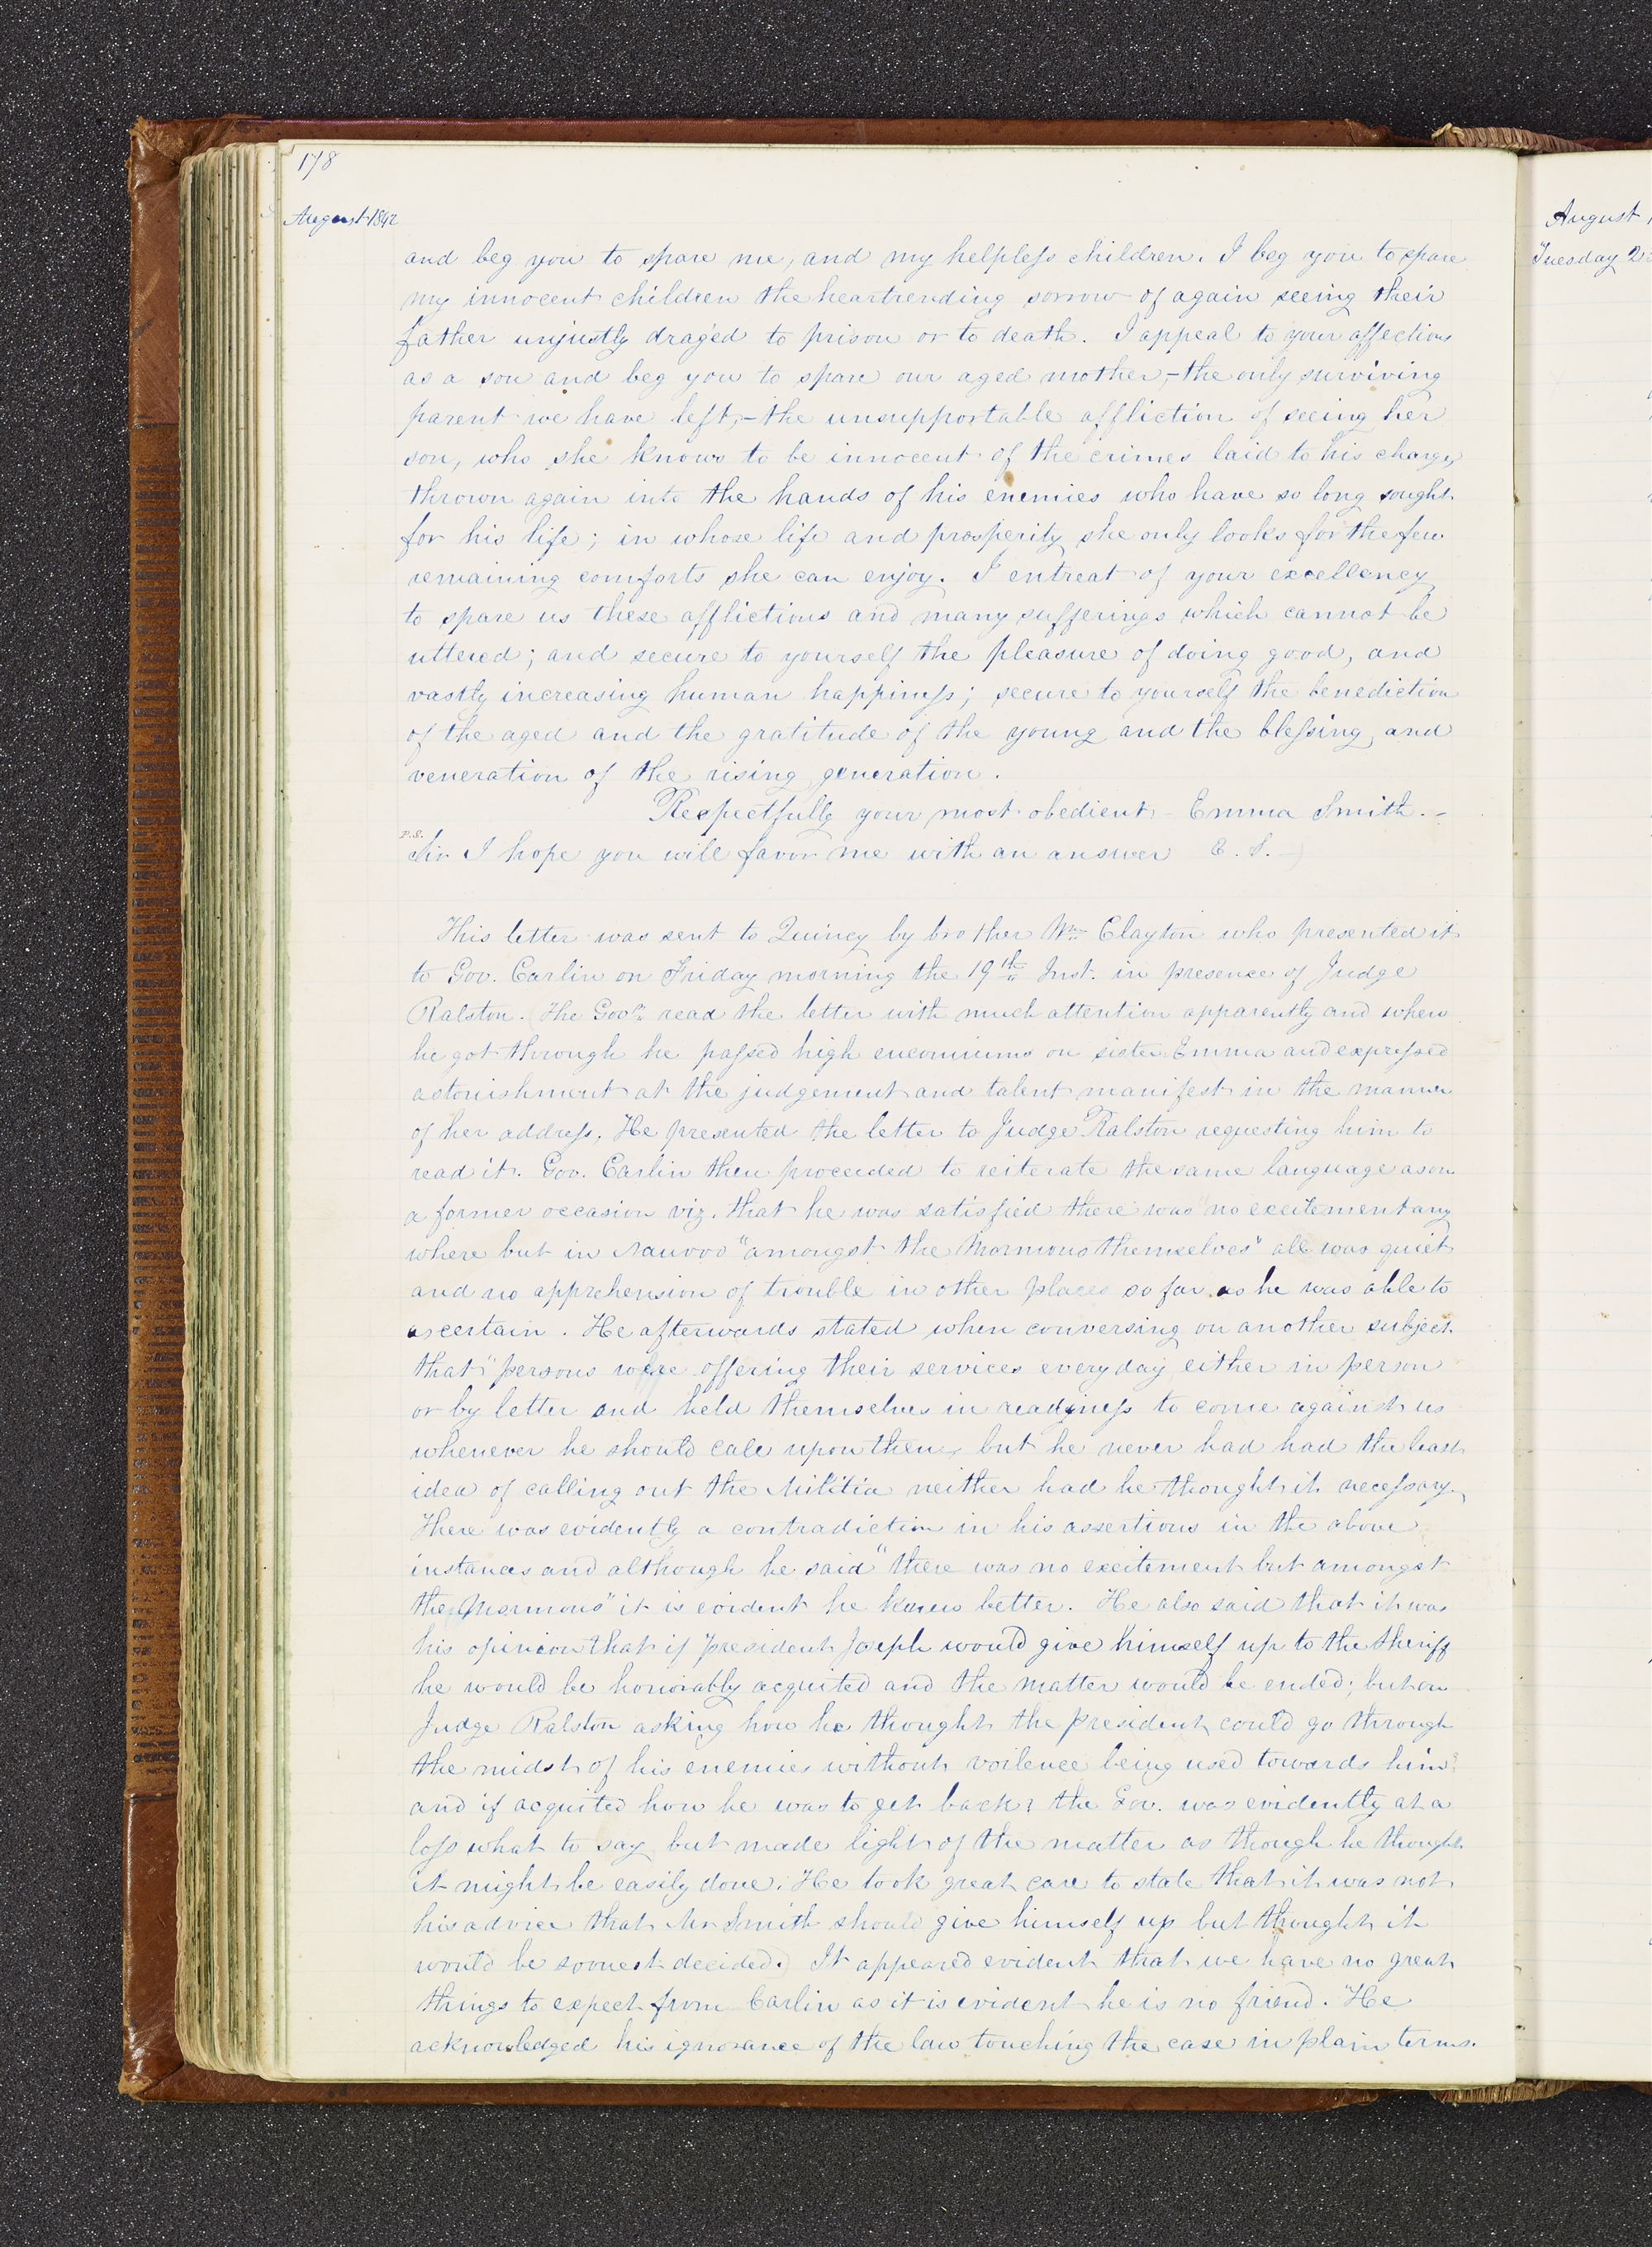 178
August 1842
and beg you to spare me, and my helpless children. I beg you to spare
my innocent children the heartrending sorrow of again seeing their
father unjustly draged to prison or to death. I appeal to your affections
as a son and beg you to spare our aged mother,—the only surviving
parent we have left,—the unsupportable affliction of seeing her
son, who she knows to be innocent of the crimes laid to his charge,
thrown again into the hands of his enemies who have so long sought
for his life; in whose life and prosperity she only looks for the few
remaining comforts she can enjoy. I entreat of your excellency
to spare us these afflictions and many sufferings which cannot be
uttered; and secure to yourself the pleasure of doing good, and
vastly increasing human happiness; secure to yourself the benediction
of the aged and the gratitude of the young and the blessing and
veneration of the rising generation.
Respectfully your most obedient— Emma Smith.—
P.S.
Sir I hope you will favor me with an answer E. S.—)
This letter was sent to Quincy by brother Wm Clayton who presented it
to Gov. Carlin on Friday morning the 19th Inst. in presence of Judge
Ralston. (The Govr. read the letter with much attention apparently and when
he got through he passed high encomiums on sister Emma and expressed
astonishment at the judgement and talent manifest in the manner
of her address. He presented the letter to Judge Ralston requesting him to
read it. Gov. Carlin then proceeded to reiterate the same language as on
a former occasion viz. that he was satisfied there was "no excitement any
where but in Nauvoo "amongst the Mormons themselves" all was quiet
and no apprehension of trouble in other places so far as he was able to
ascertain. He afterwards stated when conversing on another subject
that "persons were offering their services every day either in person
or by letter and held themselves in readiness to come against us
whenever he should call upon them, but he never had had the least
idea of calling out the Militia neither had he thought it necessary.
There was evidently a contradiction in his assertions in the above
instances and although he said "there was no excitement but amongst
the Mormons" it is evident he knew better. He also said that it was
his opinion that if President Joseph would give himself up to the Sheriff
he would be honorably acquited and the matter would be ended; but on
Judge Ralston asking how he thought the president could go through
the midst of his enemies without voilence being used towards him?
and if acquited how he was to get back? the Gov. was evidently at a
loss what to say but made light of the matter as though he thought
it might be easily done. He took great care to state that it was not
his advice that Mr Smith should give himself up but thought it
would be soonest decided.) It appeared evident that we have no great
things to expect from Carlin as it is evident he is no friend. He
acknowledged his ignorance of the law touching the case in plain terms.
August
Tuesday